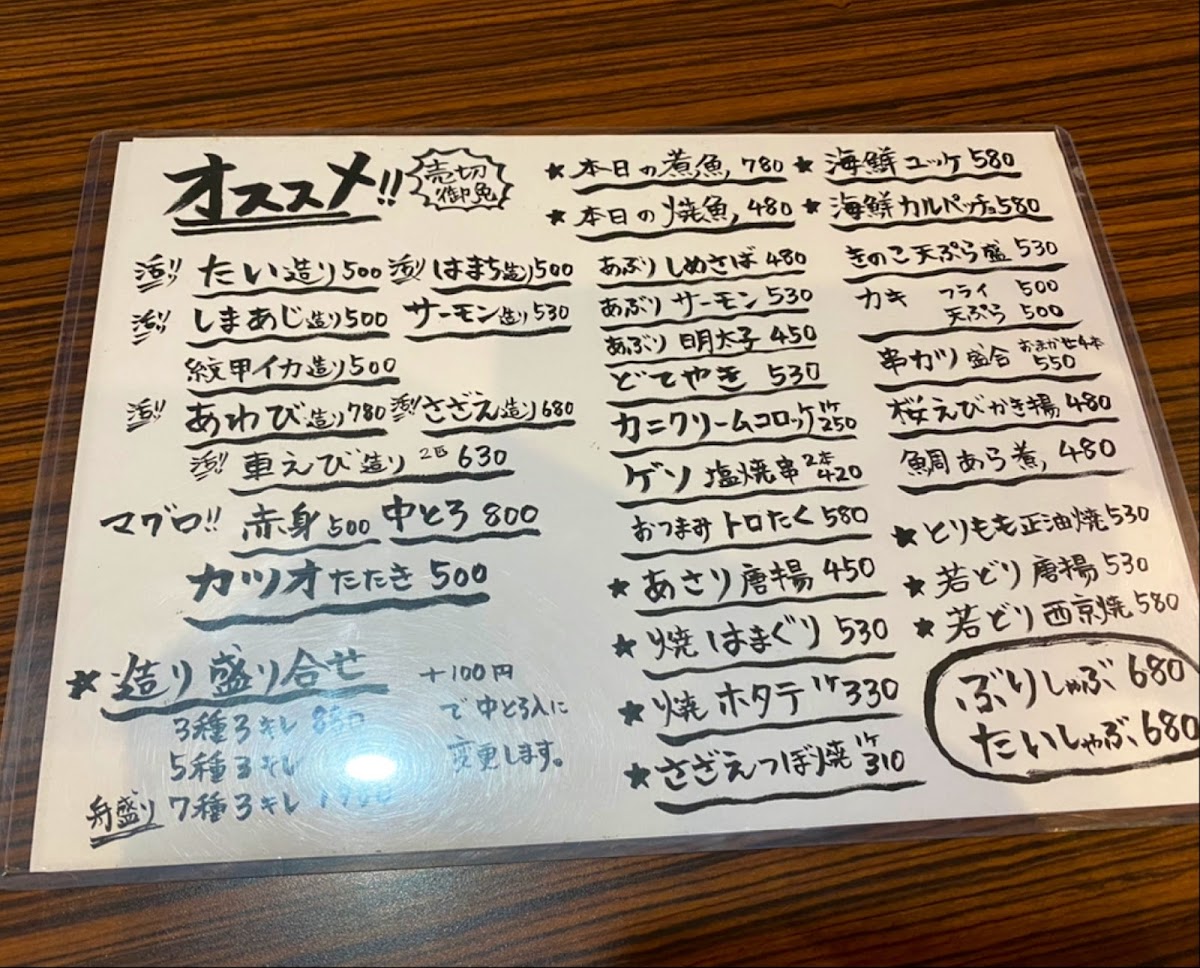 オススメ!!
売切
御免
活!! たい造り 500
活!! はまち造り 500
活!! しまあじ造り 500
サーモン造り 530
紋甲イカ造り 500
活!! あわび造り 780
活!! さざえ造り 680
活!! 車えび造り 2匹 630
マグロ!! 赤身 500 中とろ 800
カツオたたき 500
★ 造り盛り合せ
3種3キレ
5種3キレ
舟盛り 7種3キレ
+100円
で中とろ入に
変更します。
★ 本日の煮魚 780
★ 本日の焼魚 480
あぶりしめさば 480
あぶりサーモン 530
あぶり明太子 450
どてやき 530
カニクリームコロッケ 1ケ 250
ゲソ塩焼串 2本 420
おつまみトロたく 580
★ あさり唐揚 450
★ 焼はまぐり 530
★ 焼ホタテ 1ケ 330
★ さざえつぼ焼 1ケ 310
★ 海鮮ユッケ 580
★ 海鮮カルパッチョ 580
きのこ天ぷら盛 530
カキ フライ 500
天ぷら 500
串カツ盛合 おまかせ4本 550
桜えびかき揚 480
鯛あら煮 480
★ とりもも正油焼 530
★ 若どり唐揚 530
★ 若どり西京焼 580
ぶりしゃぶ 680
たいしゃぶ 680